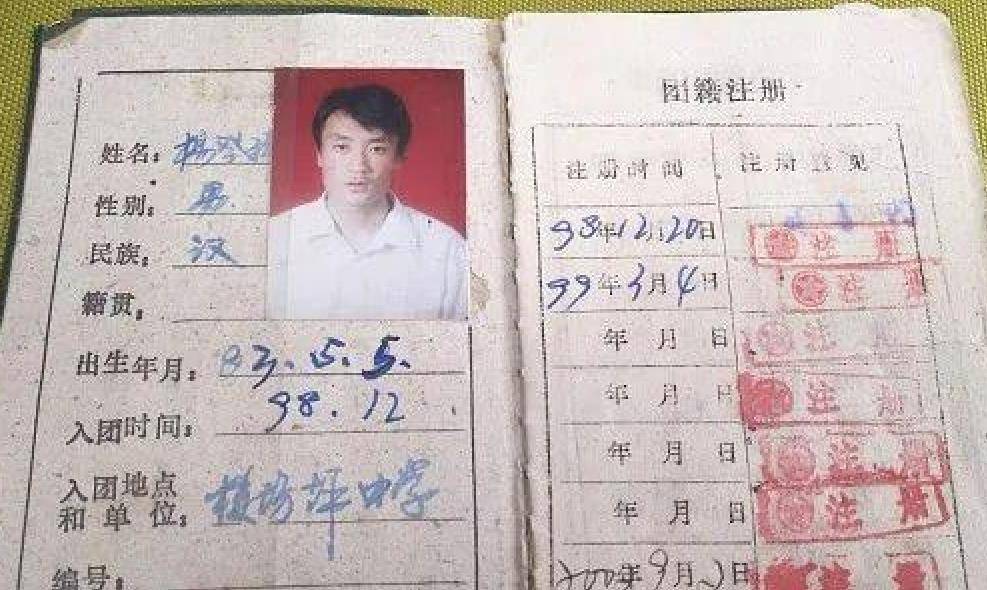 姓名：杨
性别：男
民族：汉
籍贯：
出生年月：83.5.5.
入团时间：98.12
入团地点
和单位：坪中学
编号：
团籍注册
注册时间 注册意见
98年12月20日 注册
99年3月4日 注册
年 月 日 注册
年 月 日 注册
年 月 日 注册
年 月 日 注册
年9月 日 注册